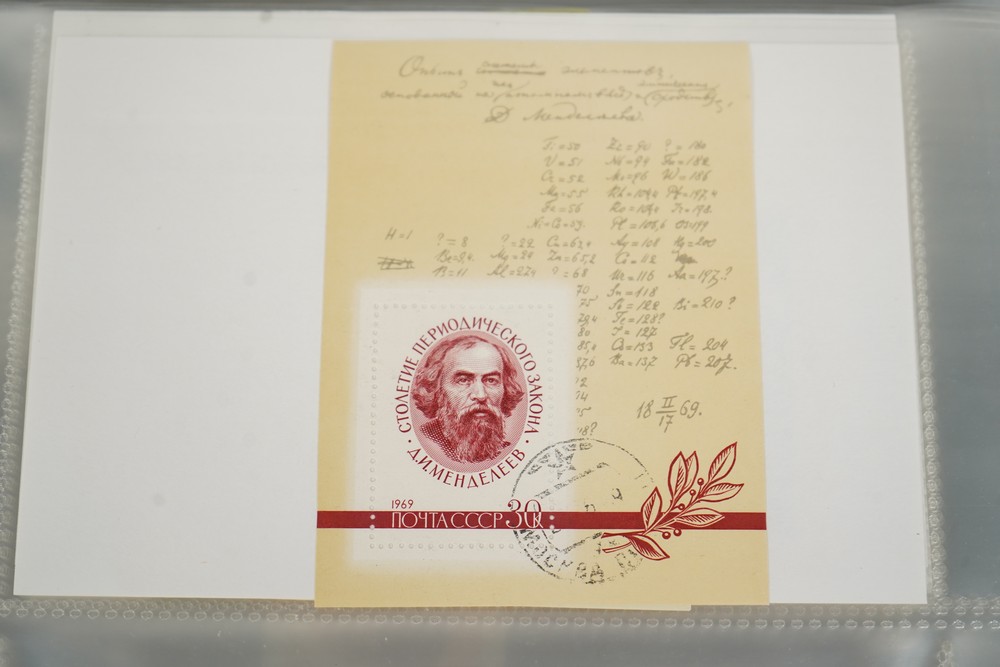 Опытъ системы элементовъ,
основанной на ихъ атомномъ вѣсѣ и
Д. Менделѣева.
Ti=50 Zr=90 ?=180
V=51 Nb=94 Ta=182
Cr=52 Mo=96 W=186
Mn=55 Rh=104,4 Pt=197,4
Fe=56 Ru=104,4 Ir=198
Ni=Co=59 Pl=106,6 Os=199
H=1 ?=8 ?=22 Cu=63,4 Ag=108 Hg=200
Be=9,4 Mg=24 Zn=65,2 Cd=112
B=11 Al=27,4 ?=68 Ur=116 Au=197?
70 Sn=118
75 Sb=122 Bi=210?
79,4 Te=128?
80 J=127
85,4 Cs=133 Tl=204
87,6 Ba=137 Pb=207.
?2
?4
?5
?8?
18 II/17 69.
СТОЛЕТИЕ ПЕРИОДИЧЕСКОГО ЗАКОНА
· Д.И.МЕНДЕЛЕЕВ ·
1969
ПОЧТА СССР 30к
МОСКВА